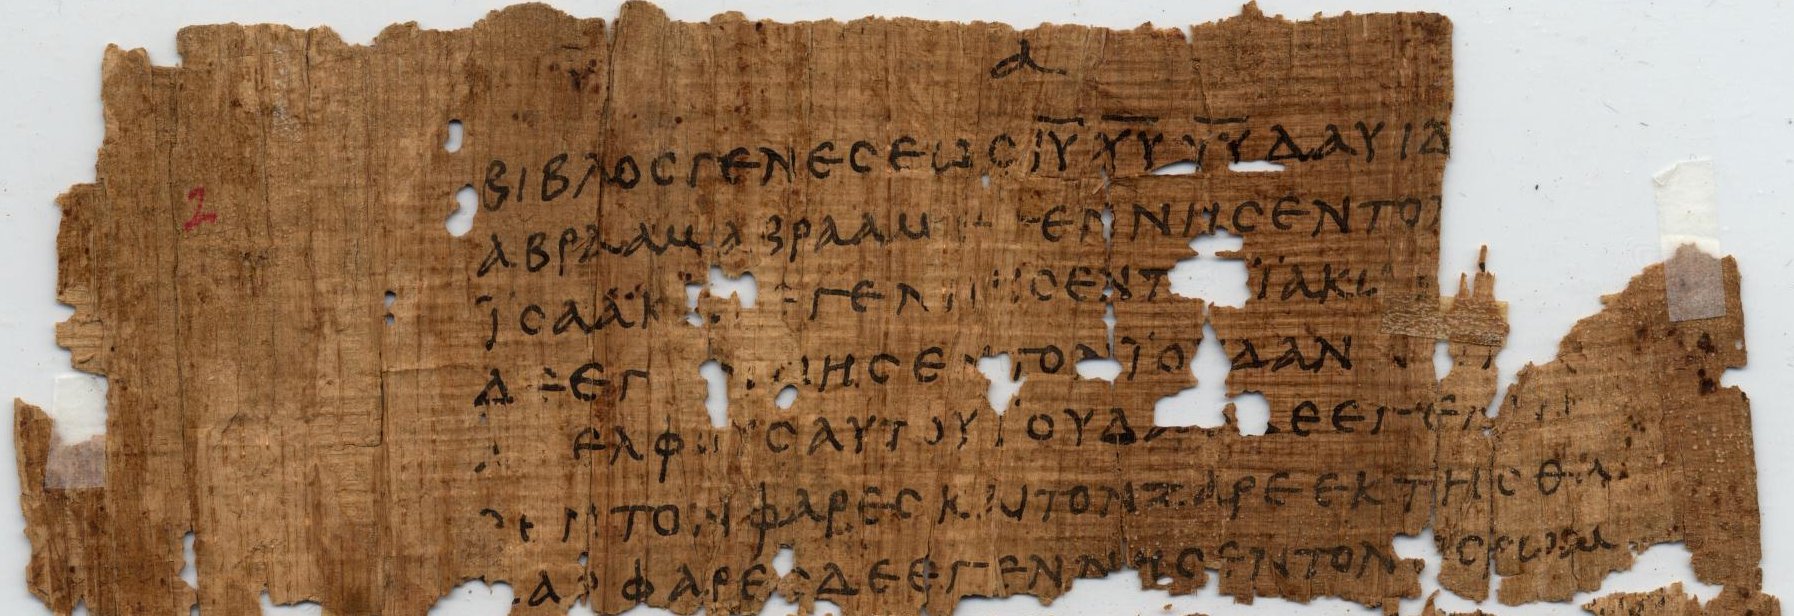 α
2
ΒΙΒΛΟϹΓΕΝΕϹΕΩϹΙ̅Υ̅Χ̅Υ̅Υ̅Υ̅ΔΑΥΙΔ
ΑΒΡΑΑΜΑΒΡΑΑΜ ΕΓΕΝΝΗϹΕΝΤΟ
ΪϹΑΑΚ ΕΓΕΝΝΗϹΕΝΤ ΪΑΚΩ
Δ ΕΕΓ ΝΗϹΕΝΤΟΝΪΟΥΔΑΝ
ΕΛΦΟΥϹΑΥΤΟΥΪΟΥΔΑ ΔΕΕΓΕΝ
ϹΕΝΤΟΝΦΑΡΕϹΚΑΙΤΟΝΖΑΡΕΕΚΤΗϹΘΑ
ΜΑΡΦΑΡΕϹΔΕΕΓΕΝΝΗϹΕΝΤΟΝ ΕϹΡΩΜ